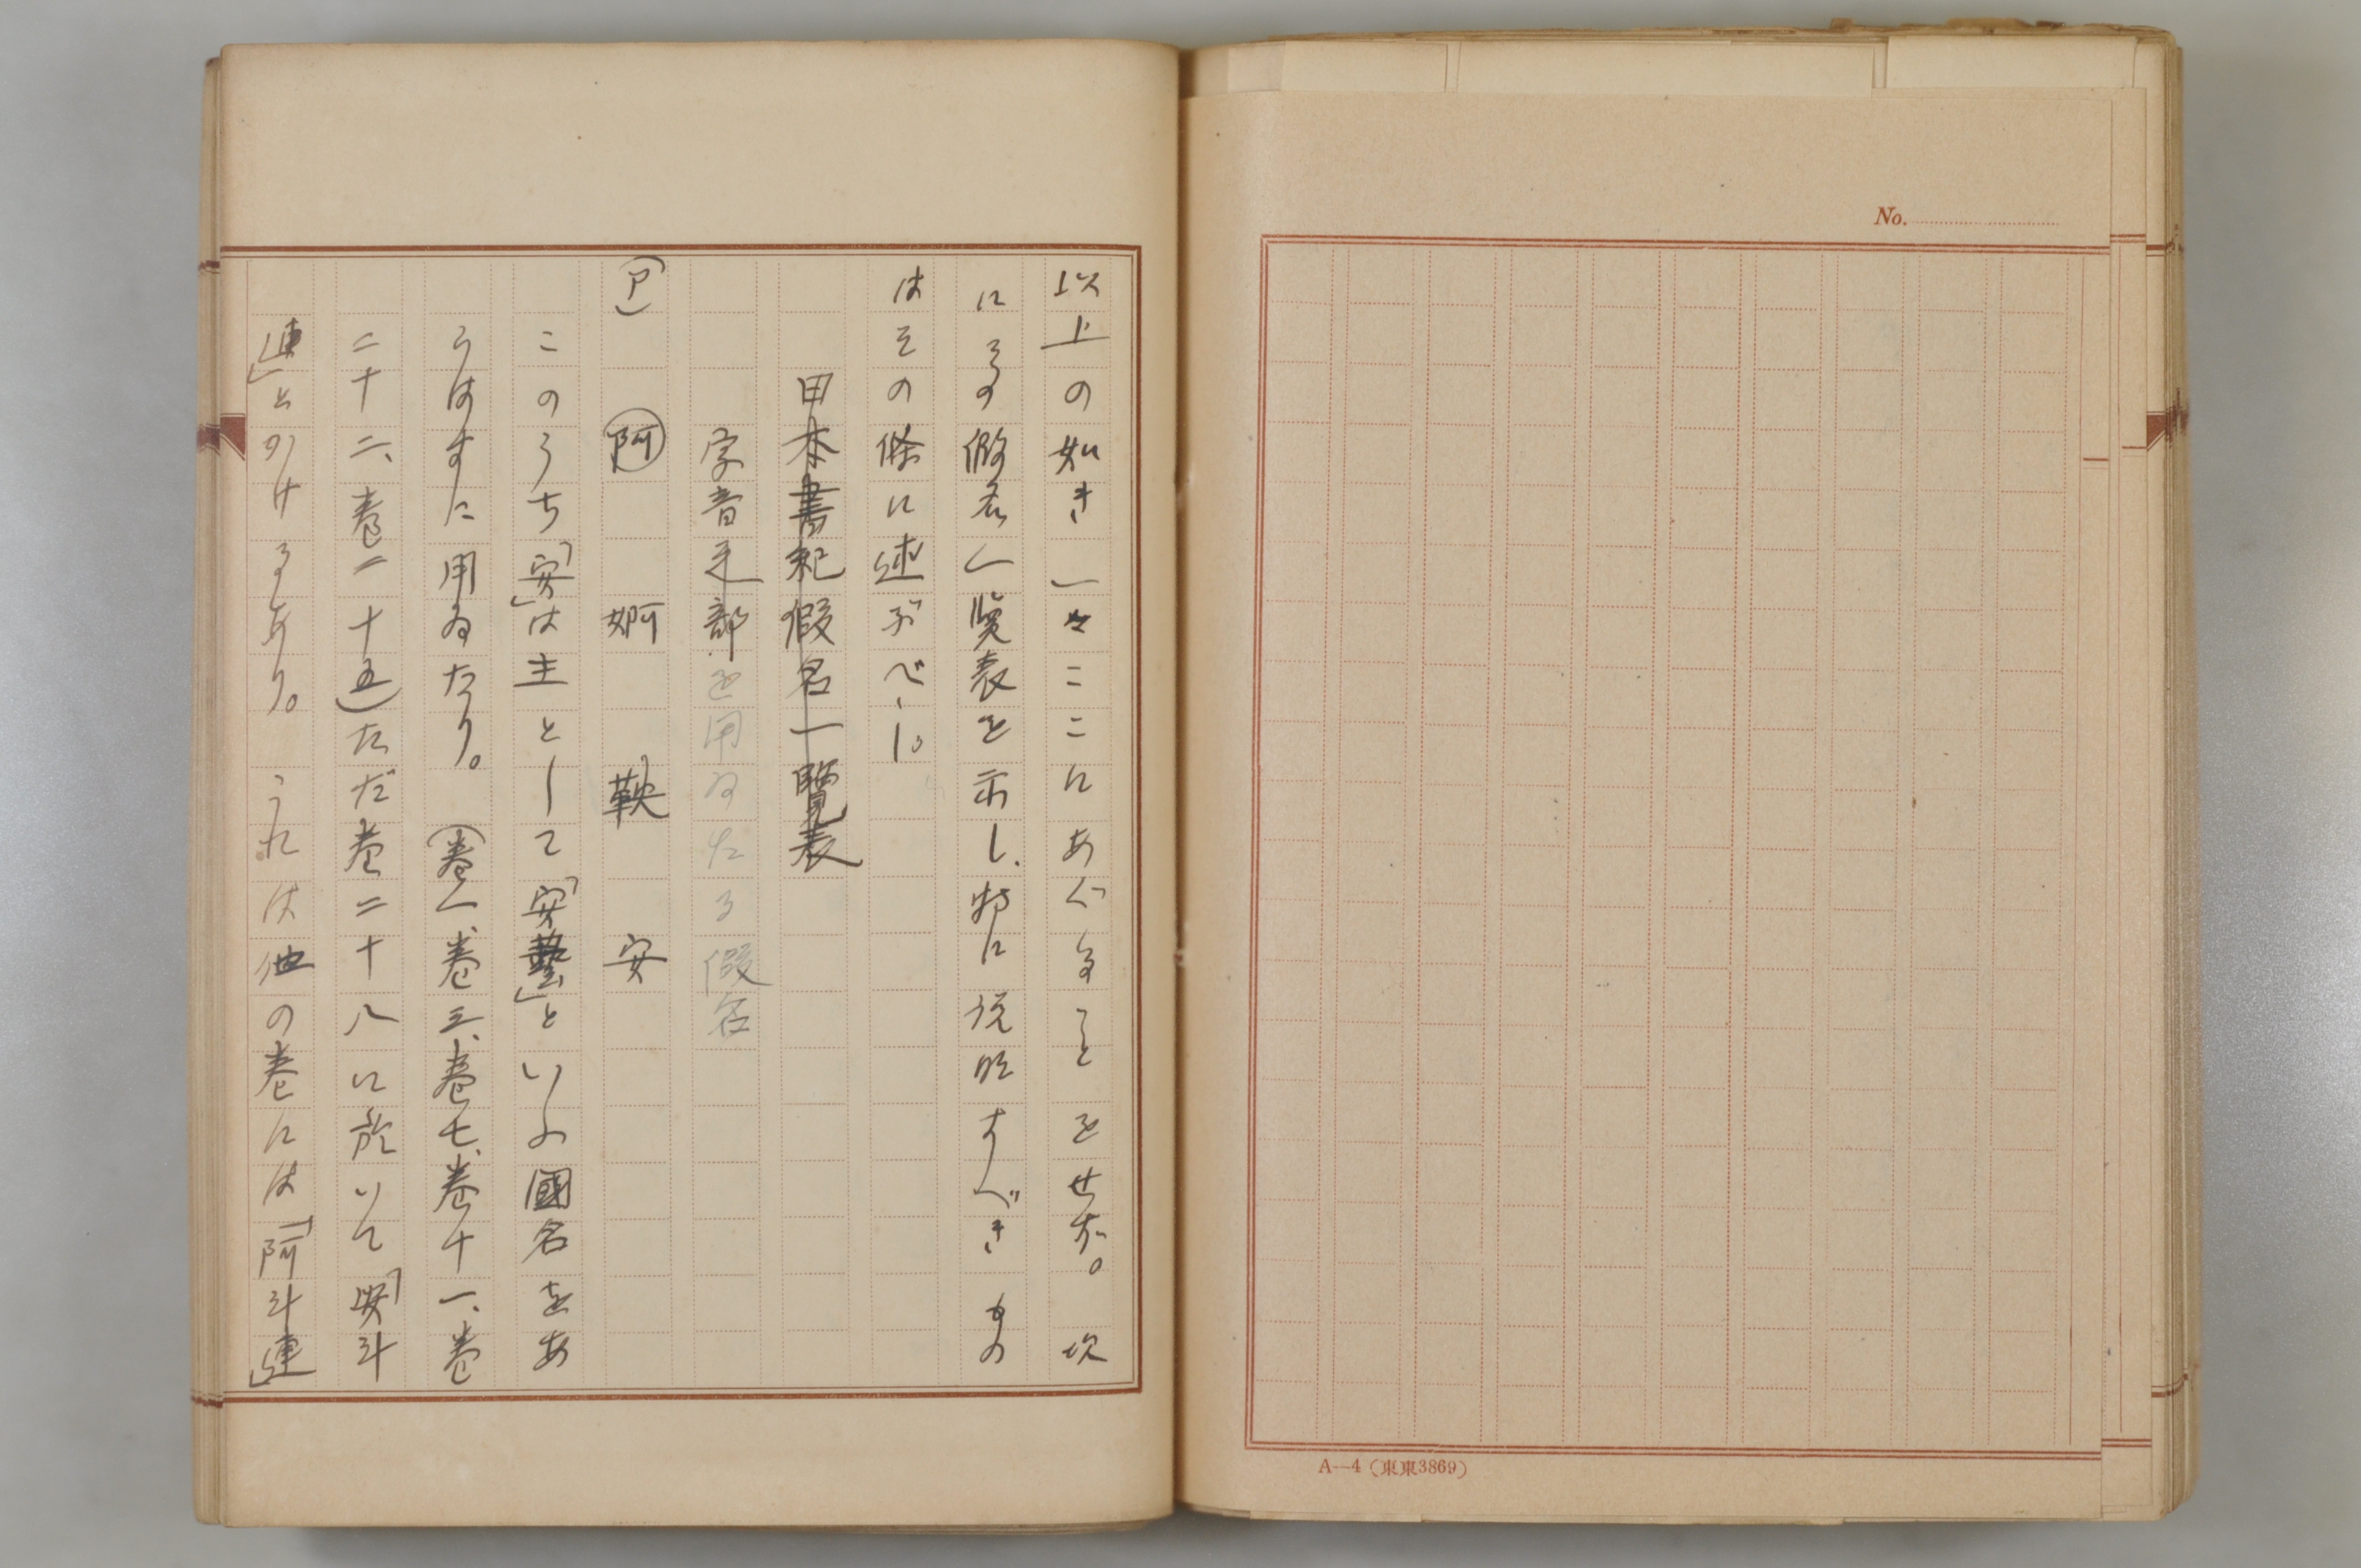 No.
A—4 (東東3869)
以上の如き一々ここにあぐることをせず。次
にその假名一覧表を示し、特に説明すべきもの
はその條に述ぶべし。
日本書紀假名一覽表
字音 部を用ゐたる假名
(ア) 阿 婀 鞅 安
このうち「安」は主として「安藝」といふ國名をあ
らはすに用ゐたり。(巻一、巻三、巻七、巻十一、巻
二十二、巻二十五)ただ巻二十八に於いて「安斗
連」とかけるあり。これは他の巻には「阿斗連」